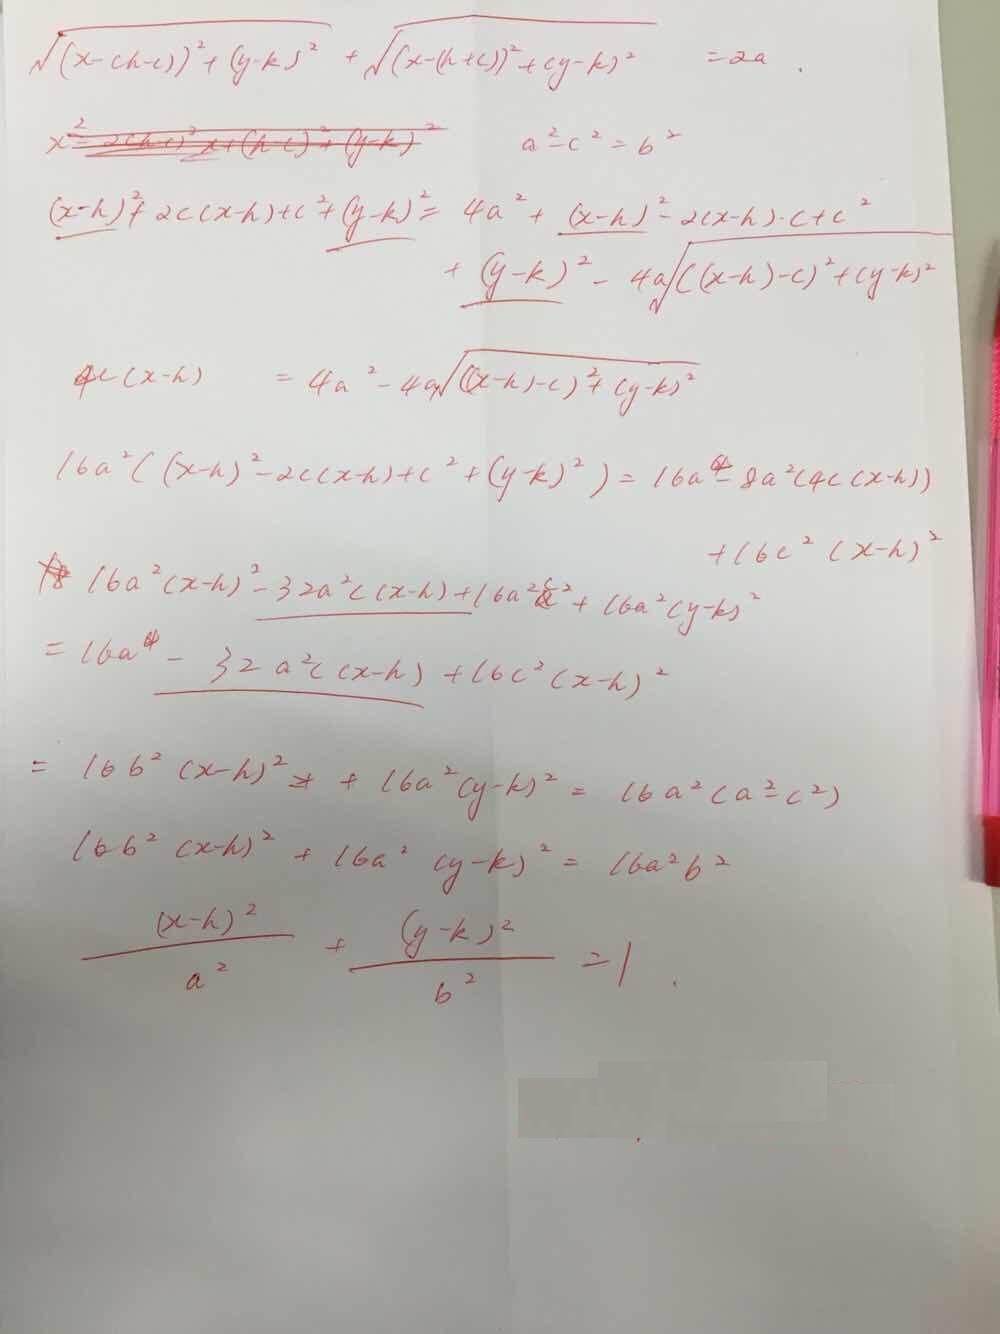 √((x-(h-c))²+(y-k)²) + √((x-(h+c))²+(y-k)²) = 2a .
a²-c² = b²
(x-h)²+2c(x-h)+c²+(y-k)² = 4a² + (x-h)²-2(x-h)·c+c²
+ (y-k)² - 4a√((x-h)-c)²+(y-k)²
4c(x-h) = 4a²-4a√((x-h)-c)²+(y-k)²
16a²((x-h)²-2c(x-h)+c²+(y-k)²) = 16a⁴-8a²(4c(x-h))
+16c²(x-h)²
16a²(x-h)²-32a²c(x-h)+16a²c²+16a²(y-k)²
= 16a⁴ - 32a²c(x-h)+16c²(x-h)²
= 16b²(x-h)² + 16a²(y-k)² = 16a²(a²-c²)
16b²(x-h)² + 16a²(y-k)² = 16a²b²
(x-h)²/a² + (y-k)²/b² = 1 .